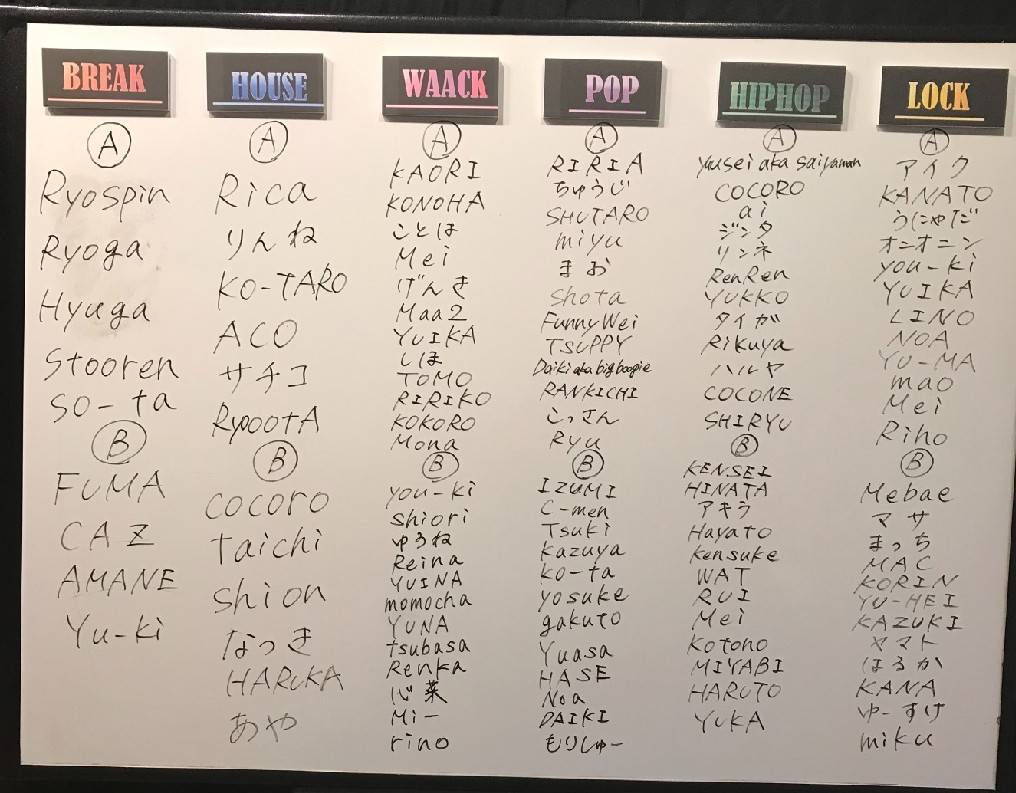 BREAK
A
Ryospin
Ryoga
Hyuga
Stooren
so-ta
B
FUMA
CAZ
AMANE
Yu-ki
HOUSE
A
Rica
りんね
KO-TARO
ACO
サチコ
RyootA
B
cocoro
taichi
shion
なつき
HARUKA
あや
WAACK
A
KAORI
KONOHA
ことは
Mei
げんき
Maa2
YUIKA
しほ
TOMO
RIRIKO
KOKORO
Mona
B
you-ki
shiori
ゆうね
Reina
YUINA
momocha
YUNA
tsubasa
Renka
心菜
Mi-
rino
POP
A
RIRIA
ちゅうじ
SHUTARO
miyu
まお
Shota
FunnyWei
TSUPPY
Daiki aka big boogie
RANKICHI
こっさん
Ryu
B
IZUMI
C-men
Tsuki
kazuya
ko-ta
yosuke
gakuto
Yuasa
HASE
Noa
DAIKI
もりしゅー
HIPHOP
A
yusei aka saiyaman
COCORO
ai
ジンタ
リンネ
RenRen
YUKKO
タイガ
Rikuya
ハルヤ
COCONE
SHIRYU
B
KENSEI
HINATA
アキラ
Hayato
kensuke
WAT
RUI
Mei
kotono
MIYABI
HARUTO
YUKA
LOCK
A
アイク
KANATO
うにゃだ
オニオニン
you-ki
YUIKA
LINO
NOA
YU-MA
mao
Mei
Riho
B
Mebae
マサ
まっち
MAC
KORIN
YU-HEI
KAZUKI
ヤマト
はるか
KANA
ゆーすけ
miku